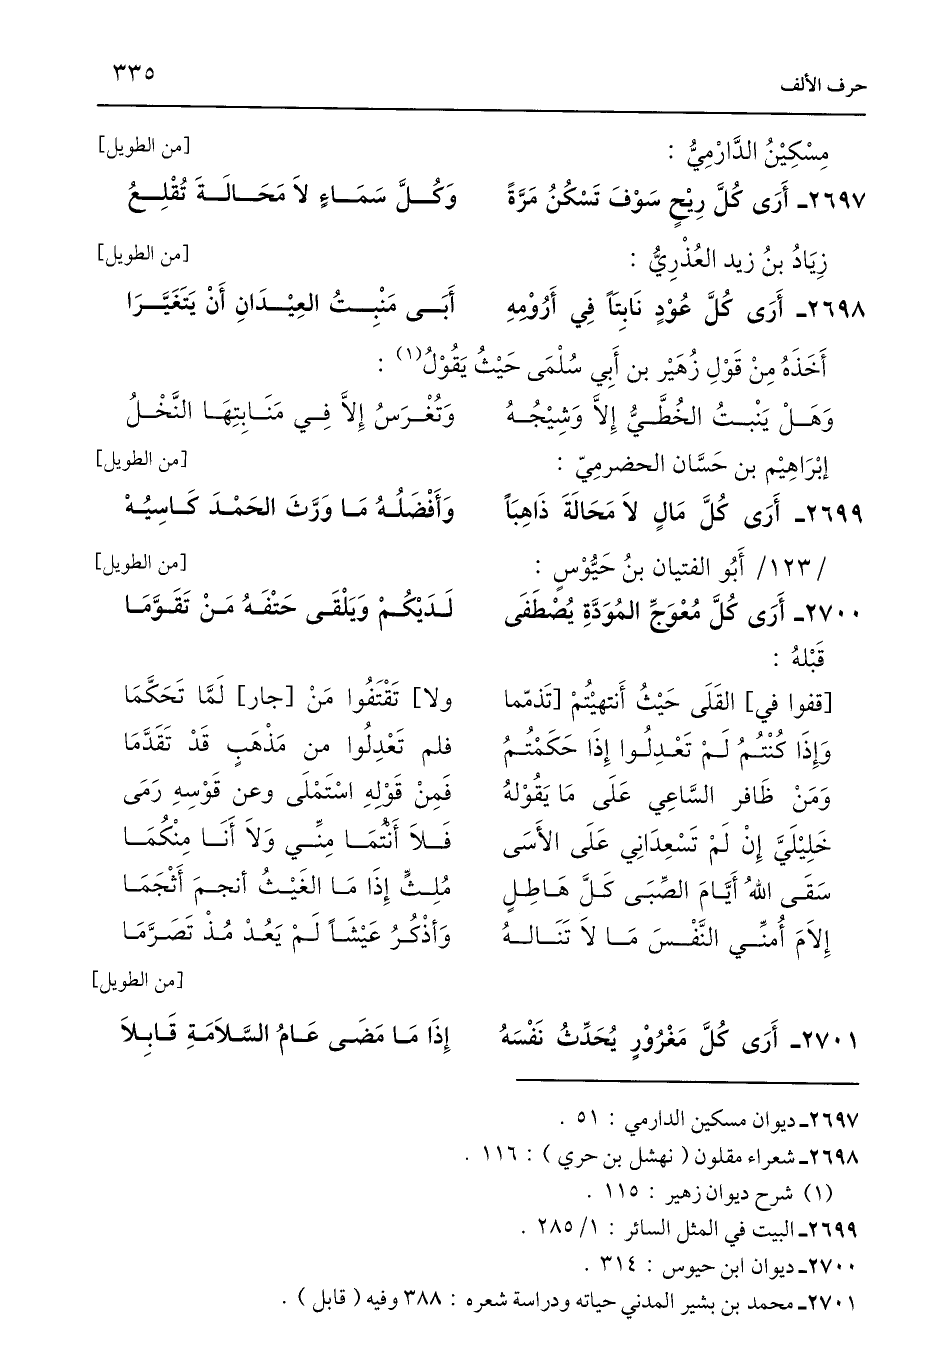 حرف الألف ٣٣٥
مِسْكِيْنُ الدَّارْمِيُّ : [من الطويل]
٢٦٩٧ـ أَرَى كُلَّ رِيْحٍ سَوْفَ تَسْكُنُ مَرَّةً وَكُلَّ سَمَاءٍ لاَ مَحَالَةَ تُقْلِعُ
زِيَادُ بنُ زيد العُذْرِيُّ : [من الطويل]
٢٦٩٨ـ أَرَى كُلَّ عُوْدٍ نَابِتَاً فِي أَرُوْمِهِ أَبَى مَنْبِتُ العِيْدَانِ أَنْ يَتَغَيَّرَا
أَخَذَهُ مِنْ قَوْلِ زُهَيْر بن أَبِي سُلْمَى حَيْثُ يَقُوْلُ(١) :
وَهَلْ يَنْبِتُ الخُطَّيُّ إِلاَّ وَشِيْجُهُ وَتُغْرَسُ إِلاَّ فِي مَنَابِتِهَا النَّخْلُ
إِبْرَاهِيْم بن حَسَّان الحضرميّ : [من الطويل]
٢٦٩٩ـ أَرَى كُلَّ مَالٍ لاَ مَحَالَةَ ذَاهِبَاً وَأَفْضَلُهُ مَا وَرَّثَ الحَمْدَ كَاسِبُهْ
/١٢٣/ أَبُو الفتيان بنُ حَيُّوْسٍ : [من الطويل]
٢٧٠٠ـ أَرَى كُلَّ مُعْوَجِّ المُوَدَّةِ يُصْطَفَى لَدَيْكُمْ وَيَلْقَى حَتْفَهُ مَنْ تَقَوَّمَا
قَبْلهُ :
[قفوا في] القَلَى حَيْثُ أَنتهيْتُمْ [تَذمّما ولا] تَقْتَفُوا مَنْ [جار] لَمَّا تَحَكَّمَا
وَإِذَا كُنْتُمُ لَمْ تَعْدِلُوا إِذَا حَكَمْتُمُ فلم تَعْدِلُوا من مَذْهَبٍ قَدْ تَقَدَّمَا
وَمَنْ ظَافر السَّاعِي عَلَى مَا يَقُوْلهُ فَمِنْ قَوْلِهِ اسْتَمْلَى وعن قَوْسِهِ رَمَى
خَلِيْلَيَّ إِنْ لَمْ تَسْعِدَانِي عَلَى الأَسَى فَلاَ أَنْتُمَا مِنِّي وَلاَ أَنَا مِنْكُمَا
سَقَى اللهُ أَيَّامَ الصِّبَى كَلَّ هَاطِلٍ مُلِثٍّ إِذَا مَا الغَيْثُ أنجمَ أَثْجَمَا
إِلاَمَ أُمنِّي النَّفْسَ مَا لاَ تَنَالهُ وَأَذْكُرُ عَيْشَاً لَمْ يَعُدْ مُذْ تَصَرَّمَا
[من الطويل]
٢٧٠١ـ أَرَى كُلَّ مَغْرُوْرٍ يُحَدِّثُ نَفْسَهُ إِذَا مَا مَضَى عَامُ السَّلاَمَةِ قَابِلاَ
٢٦٩٧ـ ديوان مسكين الدارمي : ٥١ .
٢٦٩٨ـ شعراء مقلون ( نهشل بن حري ) : ١١٦ .
(١) شرح ديوان زهير : ١١٥ .
٢٦٩٩ـ البيت في المثل السائر : ١/ ٢٨٥ .
٢٧٠٠ـ ديوان ابن حيوس : ٣١٤ .
٢٧٠١ـ محمد بن بشير المدني حياته ودراسة شعره : ٣٨٨ وفيه ( قابل ) .